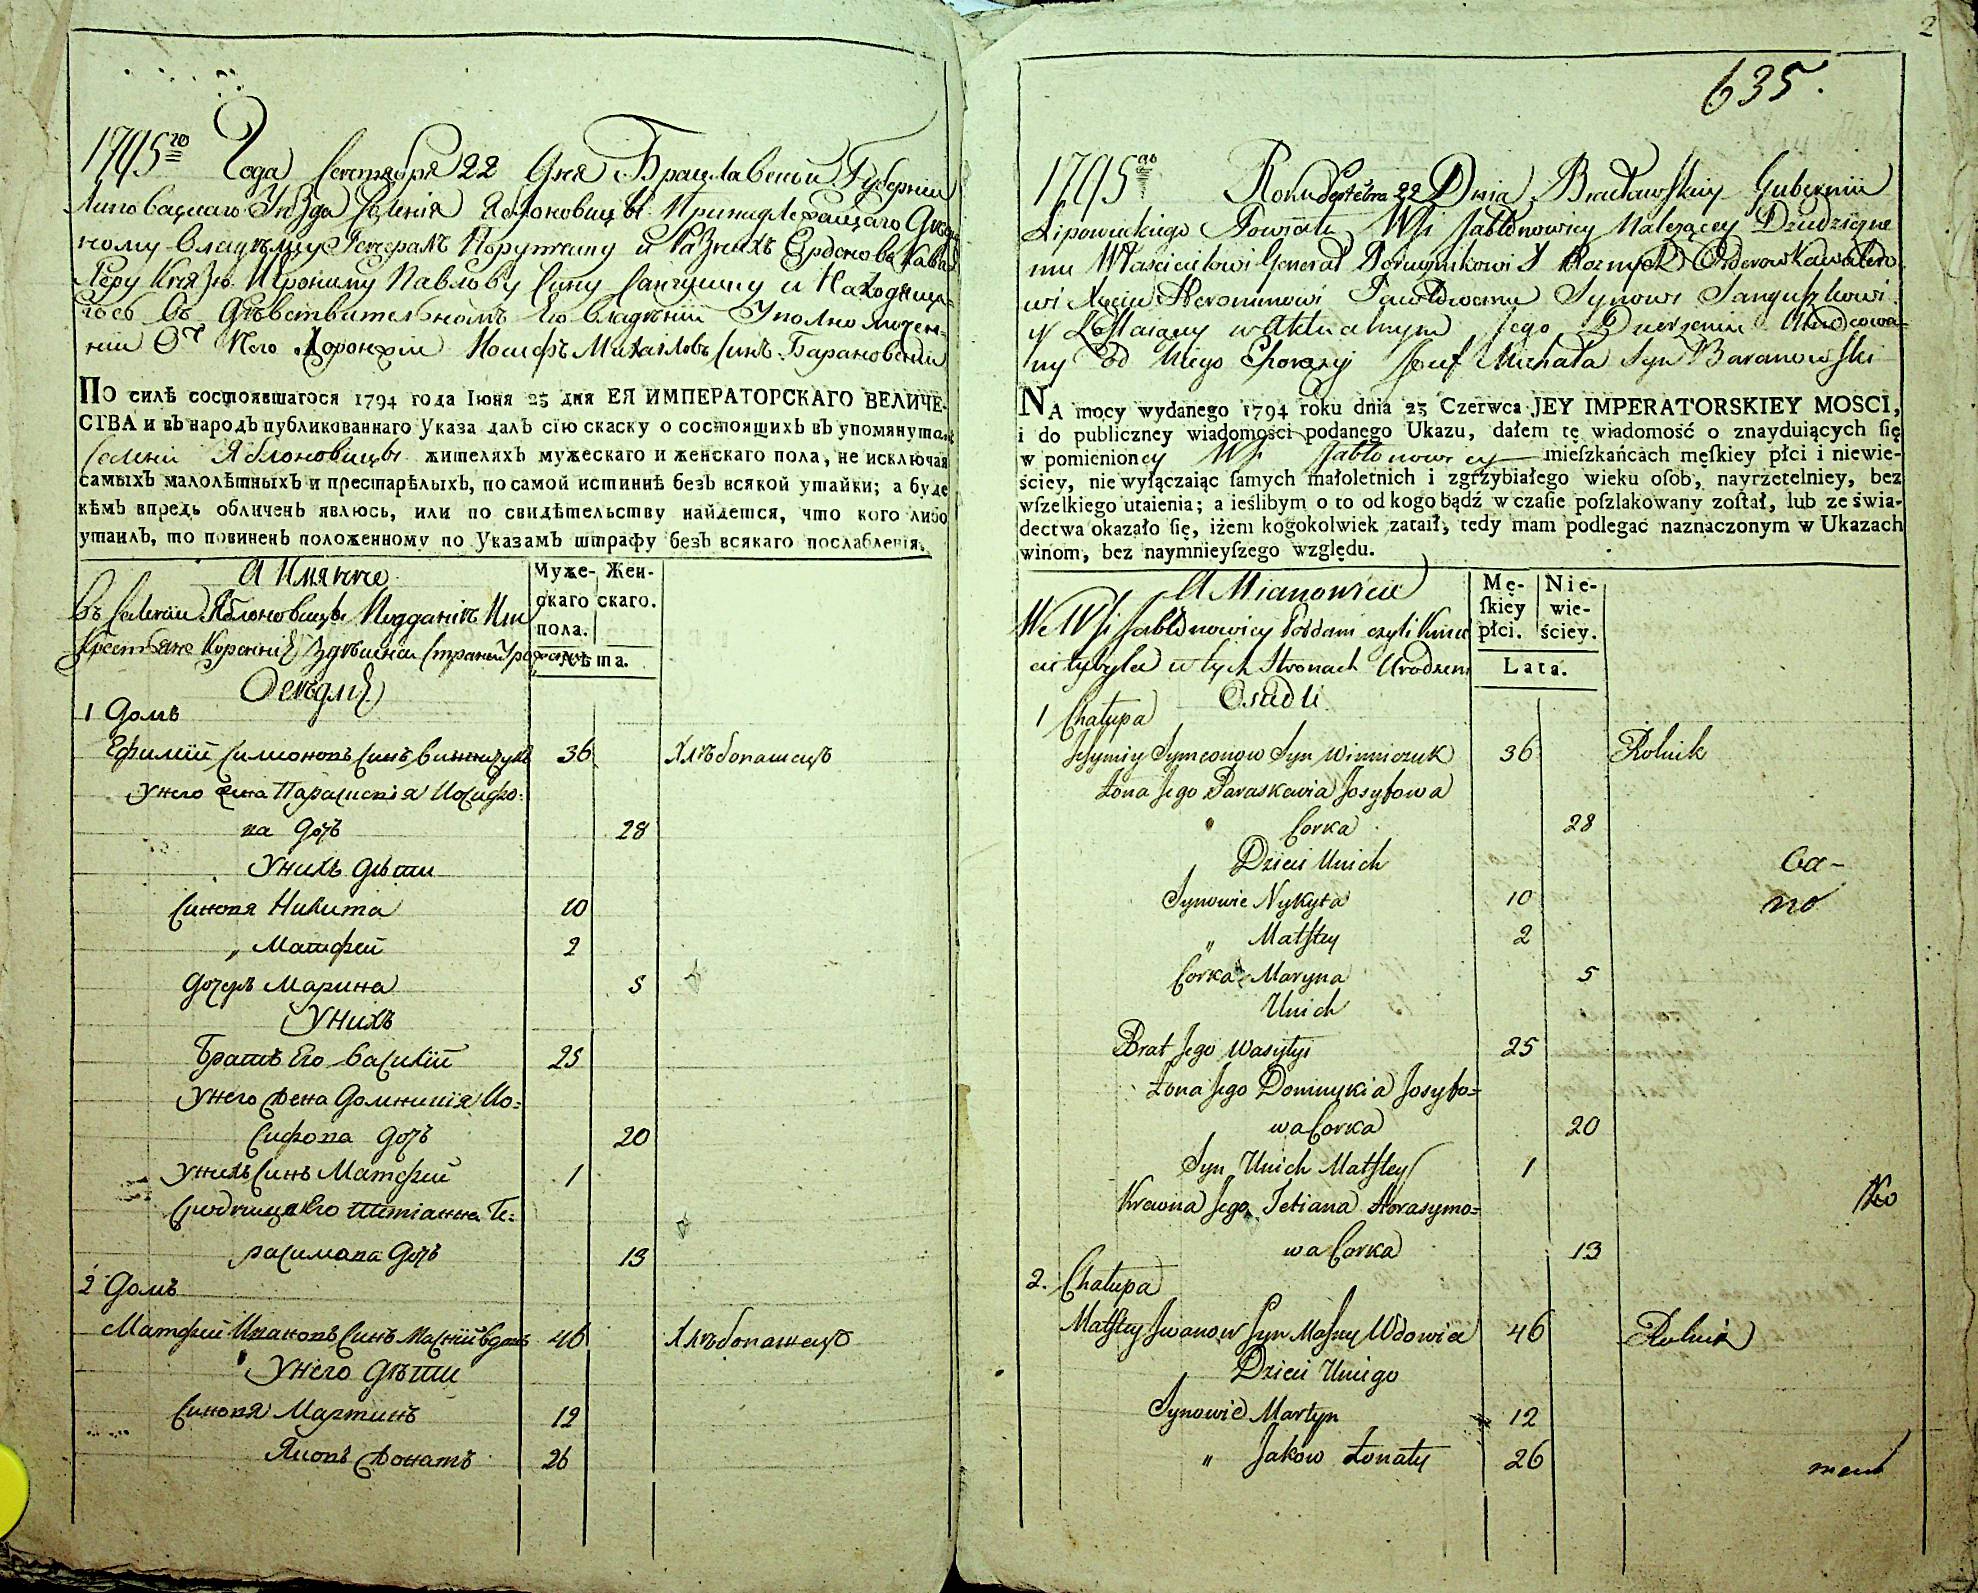 1795го Года Сентября 22 Дня Брацлавской Губернии
Липовацкаго Уѣзда Селенія Яблоновицы Принадлежащаго Дѣдич
ному Владѣльцу Генералъ Порутчику и Разнихъ Ордоновъ Кава
леру Князю Иерониму Павлову Сину Сангушку и Находяща-
гося въ Дѣвствительномъ Его владѣніи Уполномочен-
ній отъ Него Хоронжій Иосифъ Михаловъ Синъ Барановскій
По силѣ состоявшагося 1794 года Іюня 23 дня ЕЯ ИМПЕРАТОРСКАГО ВЕЛИЧЕ-
СТВА и въ народъ публикованнаго Указа далъ сію скаску о состоящихъ въ упомянутомъ
Селеніи Яблоновицы жителяхъ мужескаго и женскаго пола, не исключая
самыхъ малолѣтныхъ и престарѣлыхъ, по самой истиннѣ безъ всякой утайки; а буде
кѣмъ впредь обличенъ явлюсь, или по свидѣтельству найдется, что кого либо
утаилъ, то повиненъ положенному по Указамъ штрафу безъ всякаго послабленія.
А Имянно
Въ Селеніи Яблоновицы Подданіи Или
Крестьяне Коренніе Здѣшней Страни Урожонци
Осѣдліе
Муже- Жен-
скаго скаго.
пола.
Лѣта.
1 Домъ
Ефимій Симионовъ Синъ Винничукъ 36 Хлѣбопашецъ
У него жена Параскивія Иосифо:
ва дочъ 28
У нихъ дѣти
Синовя Никита 10
„ Матфей 2
Дочеръ Марина 5
У нихъ
Братъ Его Василій 25
У него жена Домникія Ио:
сифова дочъ 20
У нихъ Синъ Матфей 1
Сродница Его Тетіанна Ге:
расимова Дочъ 13
2 Домъ
Матфей Ивановъ Синъ Масній вдовъ 46 Хлѣбопашецъ
У него дѣти
Синовя Мартинъ 12
Яковъ Жонатъ 26
2
635.
1795go Roku Septebra 22 Dnia Bracławskiey Gubernii
Lipowieckiego Powiatu Wsi Jabłonowicy Należącey Dziedziczne
mu Właścicielowi Generał Porucznikowi Y Roznych Orderow Kawalero
wi Xięciu Heronimowi Pawłowemu Synowi Sanguszkowi
y Zostaiący w Aktualnym Jego Dzierzeniu Umocowa-
ny Od Niego Chorąży Jozef Michała Syn Baranowski
NA mocy wydanego 1794 roku dnia 23 Czerwca JEY IMPERATORSKIEY MOSCI,
i do publiczney wiadomości podanego Ukazu, dałem tę wiadomość o znayduiących się
w pomienioney Wsi Jabłonowicy mieſzkańcach męſkiey płci i niewie-
ściey, nie wyłączaiąc ſamych małoletnich i zgrzybiałego wieku oſob, nayrzetelniey, bez
wſzelkiego utaienia; a ieślibym o to od kogo bądź w czaſie poſzlakowany zoſtał, lub ze świa-
dectwa okazało się, iżem kogokolwiek zataił, tedy mam podlegać naznaczonym w Ukazach
winom, bez naymnieyſzego względu.
A Mianowicie
We Wsi Jabłonowicy Poddani czyli Kmie
cie tybyle w tych Stronach Urodzeni
Osiedli
Mę- Nie-
ſkiey wie-
płci. ściey.
Lata.
1 Chałupa
Jefymiy Symeonow Syn Winniczuk 36 Rolnik
Żona Jego Paraskawia Josyfowa
Corka 28
Dzieci Unich
Synowie Nykyta 10
„ Matfiey 2
Corka Maryna 5
Unich
Brat Jego Wasylyi 25
Żona Jego Domnykia Josyfo=
wa Corka 20
Syn Unich Matfiey 1
Krewna Jego Tetiana Horasymo=
wa Corka 13
2. Chałupa
Matfiey Jwanow Syn Masny Wdowiec 46 Rolnik
Dzieci Uniego
Synowie Martyn 12
„ Jakow Żonaty 26